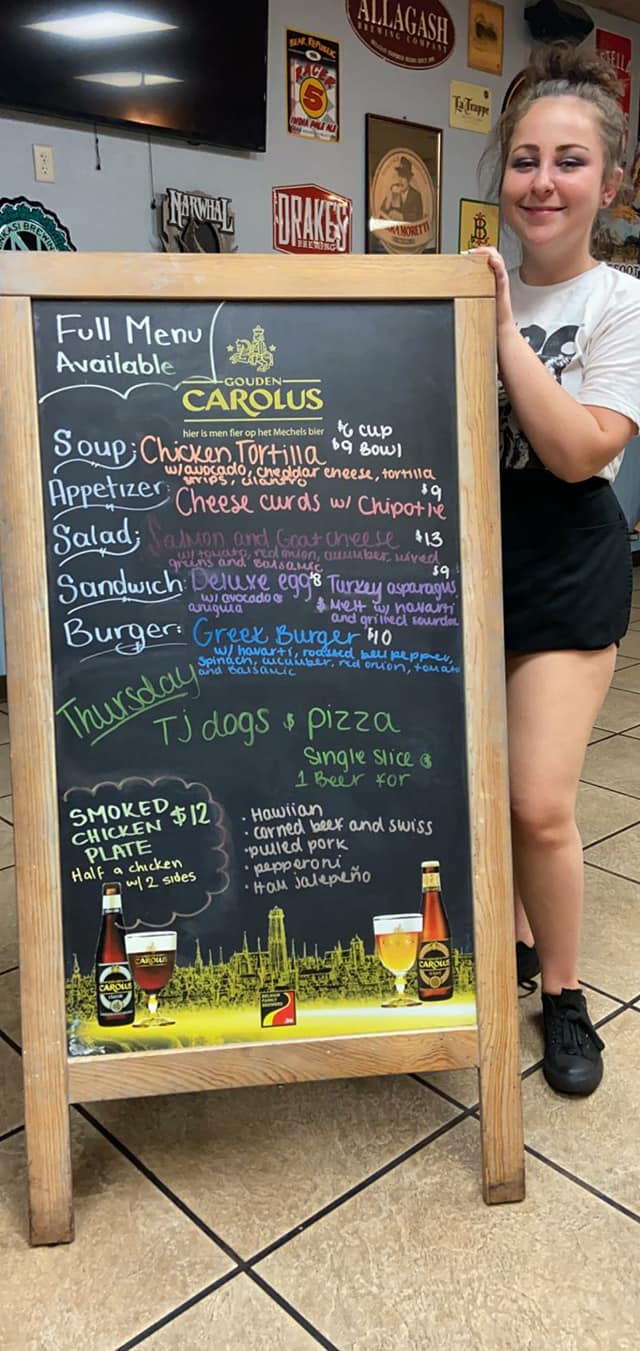 ALLAGASH
BREWING COMPANY
BEAR REPUBLIC
RACER
5
INDIA PALE ALE
La Trappe
NARWHAL
DRAKE'S
BREWING
MORETTI
B
Full Menu
Available
GOUDEN
CAROLUS
hier is men fier op het Mechels bier
Soup: Chicken Tortilla $6 cup
$9 Bowl
w/avocado, cheddar cheese, tortilla
strips, cilantro
Appetizer: Cheese curds w/ Chipotle $9
Salad: Salmon and Goat cheese $13
w/ tomato, red onion, cucumber, mixed
greens and balsamic
Sandwich: Deluxe egg $8 Turkey asparagus $9
w/ avocado & Melt w/ havarti
arugula and grilled sourdou
Burger: Greek Burger $10
w/ havarti, roasted bell pepper,
spinach, cucumber, red onion, tomato
and balsamic
Thursday
TJ dogs & pizza
Single Slice &
1 Beer for
SMOKED $12
CHICKEN
PLATE
Half a chicken
w/ 2 sides
• Hawiian
• corned beef and swiss
• pulled pork
• pepperoni
• Ham jalepeño
CAROLUS
CAROLUS
CAROLUS